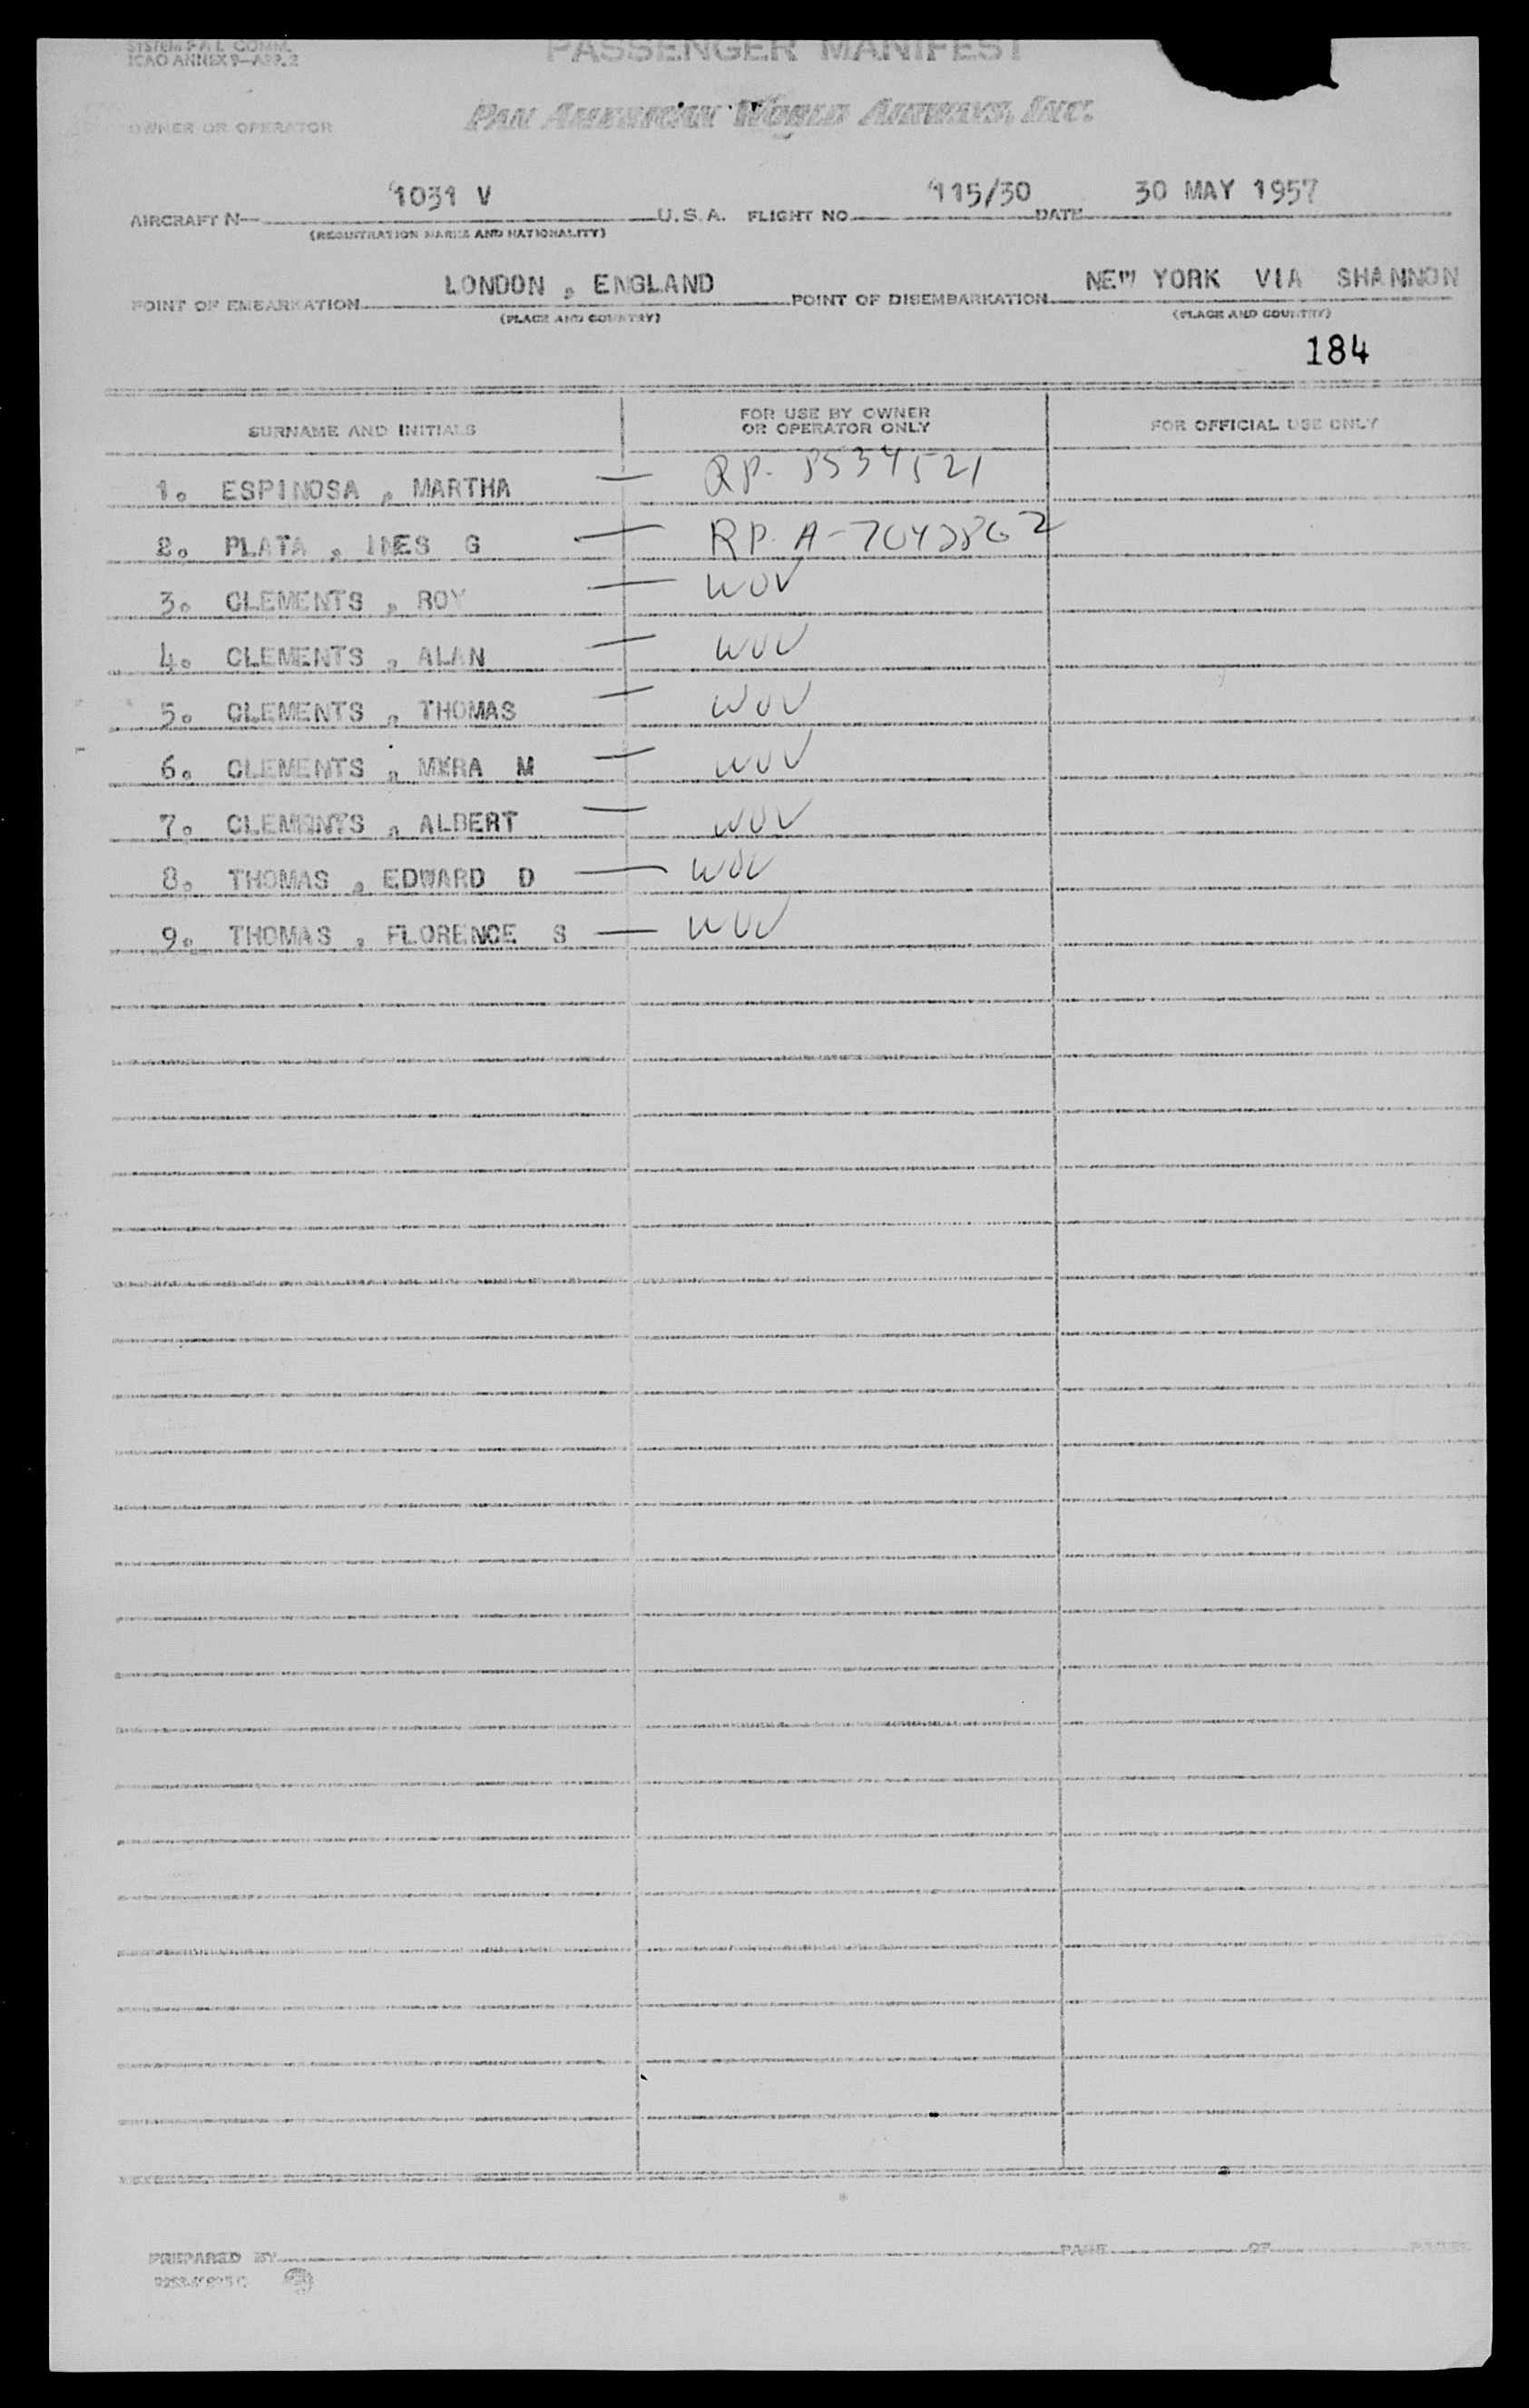 System P A L COMM.
ICAO ANNEX 9—APP. 2
PASSENGER MANIFEST
OWNER OR OPERATOR
PAN AMERICAN WORLD AIRWAYS, INC.
AIRCRAFT N— 1031 V U.S.A. FLIGHT NO. 115/30 DATE 30 MAY 1957
(REGISTRATION MARKS AND NATIONALITY)
POINT OF EMBARKATION LONDON , ENGLAND POINT OF DISEMBARKATION NEW YORK VIA SHANNON
(PLACE AND COUNTRY) (PLACE AND COUNTRY)
184
SURNAME AND INITIALS FOR USE BY OWNER OR OPERATOR ONLY FOR OFFICIAL USE ONLY
1. ESPINOSA , MARTHA — RP.
2. PLATA , INES G — RP. A-7042862
3. CLEMENTS , ROY — WOV
4. CLEMENTS , ALAN — WOV
5. CLEMENTS , THOMAS — WOV
6. CLEMENTS , MYRA M — WOV
7. CLEMENTS , ALBERT — WOV
8. THOMAS , EDWARD D — WOV
9. THOMAS , FLORENCE S — WOV
PREPARED BY PAGE OF PAGES